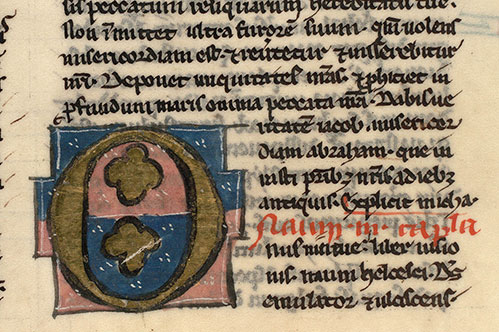 us peccatum reliquiarum hereditatis tue.
Nō īmittet ultra furorē suum. qm̄ volens
misericordiam est. reūtetur et miserebitur
nr̄i. Deponet iniquitates nr̄as. et ꝓiciet in
ꝓfundum maris omnia peccata nr̄a. Dabis ue
ritatem iacob. misericor
diam abraham. que iu
rasti patribꝰ nr̄is a diebꝫ
antiquis. Explicit micha
Naum III capla
Onus niniue. liber uisio
nis. naum helcesei. Ds̄
emulator et ulciscens.